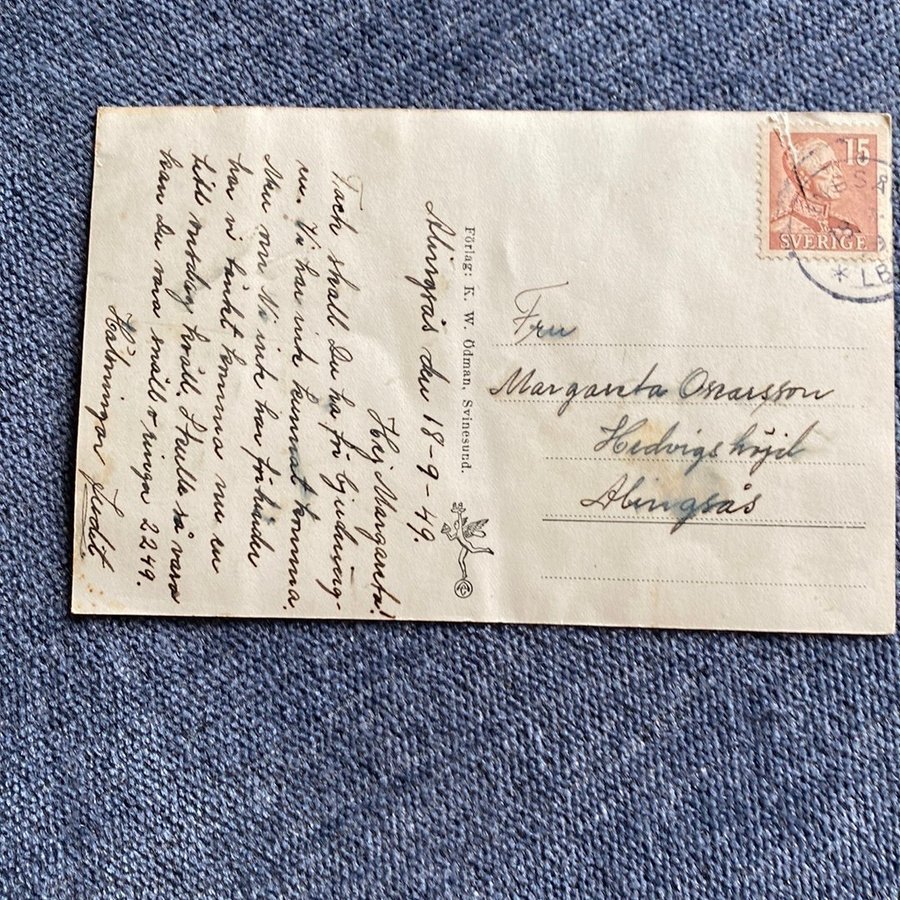 Alingsås den 18-9-49.
Hej Margareta!
Tack skall Du ha för bjudning-
en. Vi har inte kunnat komma
än om vi inte har förhinder
har vi tänkt komma nu en
tisdag kväll. Skulle så vara
kan Du vara snäll o ringa 2249.
Hälsningar
Förlag: K. W. Ödman, Svinesund.
15
SVERIGE
Fru
Margareta Oscarsson
Hedvigshöjd
Alingsås